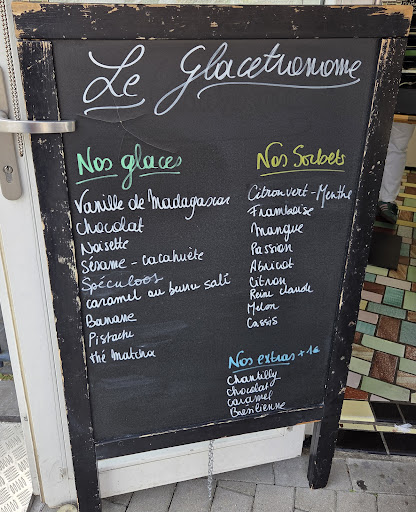 Le Glacetronome
Nos glaces
Vanille de Madagascar
Chocolat
Noisette
Sésame - cacahuète
Spéculoos
caramel au beurre salé
Banane
Pistache
thé matcha
Nos Sorbets
Citron vert - Menthe
Framboise
Mangue
Passion
Abricot
Citron
Reine claude
Melon
Cassis
Nos extras + 1€
Chantilly
chocolat
caramel
Bresilienne